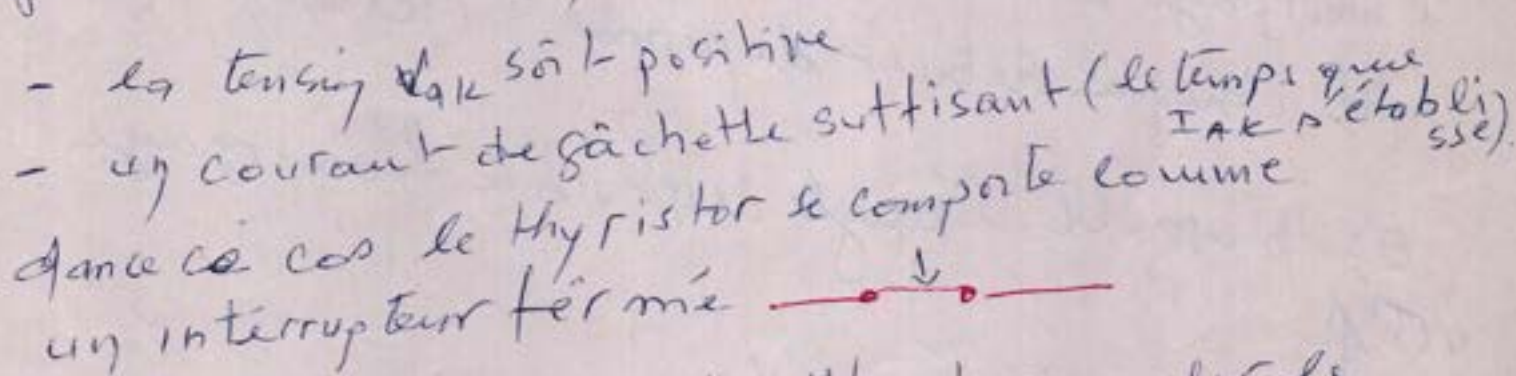 - la tension VAK soit positive
- un courant de gâchette suffisant (le temps que
IAK s'établi
sse).
dance ce cas le thyristor se comporte comme
un interrupteur fermé